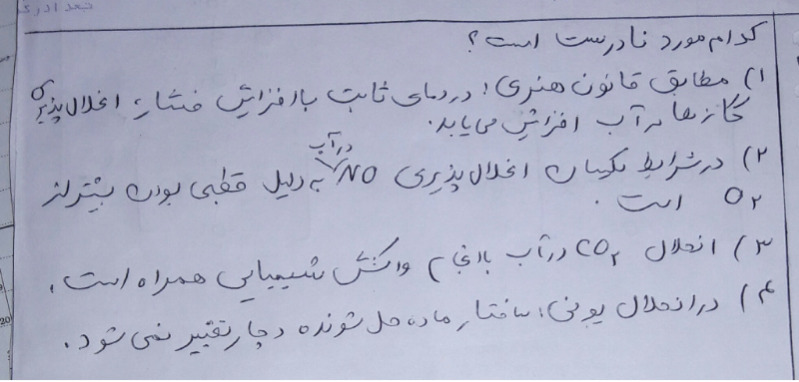 تعداد اری
کدام مورد نادرست است؟
۱) مطابق قانون هنری؛ در دمای ثابت با افزایش فشار، انحلال پذیری
گازها در آب افزایش می یابد.
۲) در شرایط یکسان انحلال پذیری NO در آب به دلیل قطبی بودن بیشتر از
O₂ است.
۳) انحلال CO₂ در آب با انجام واکنش شیمیایی همراه است.
۴) در انحلال یونی، ساختار ماده حل شونده دچار تغییر نمی شود.